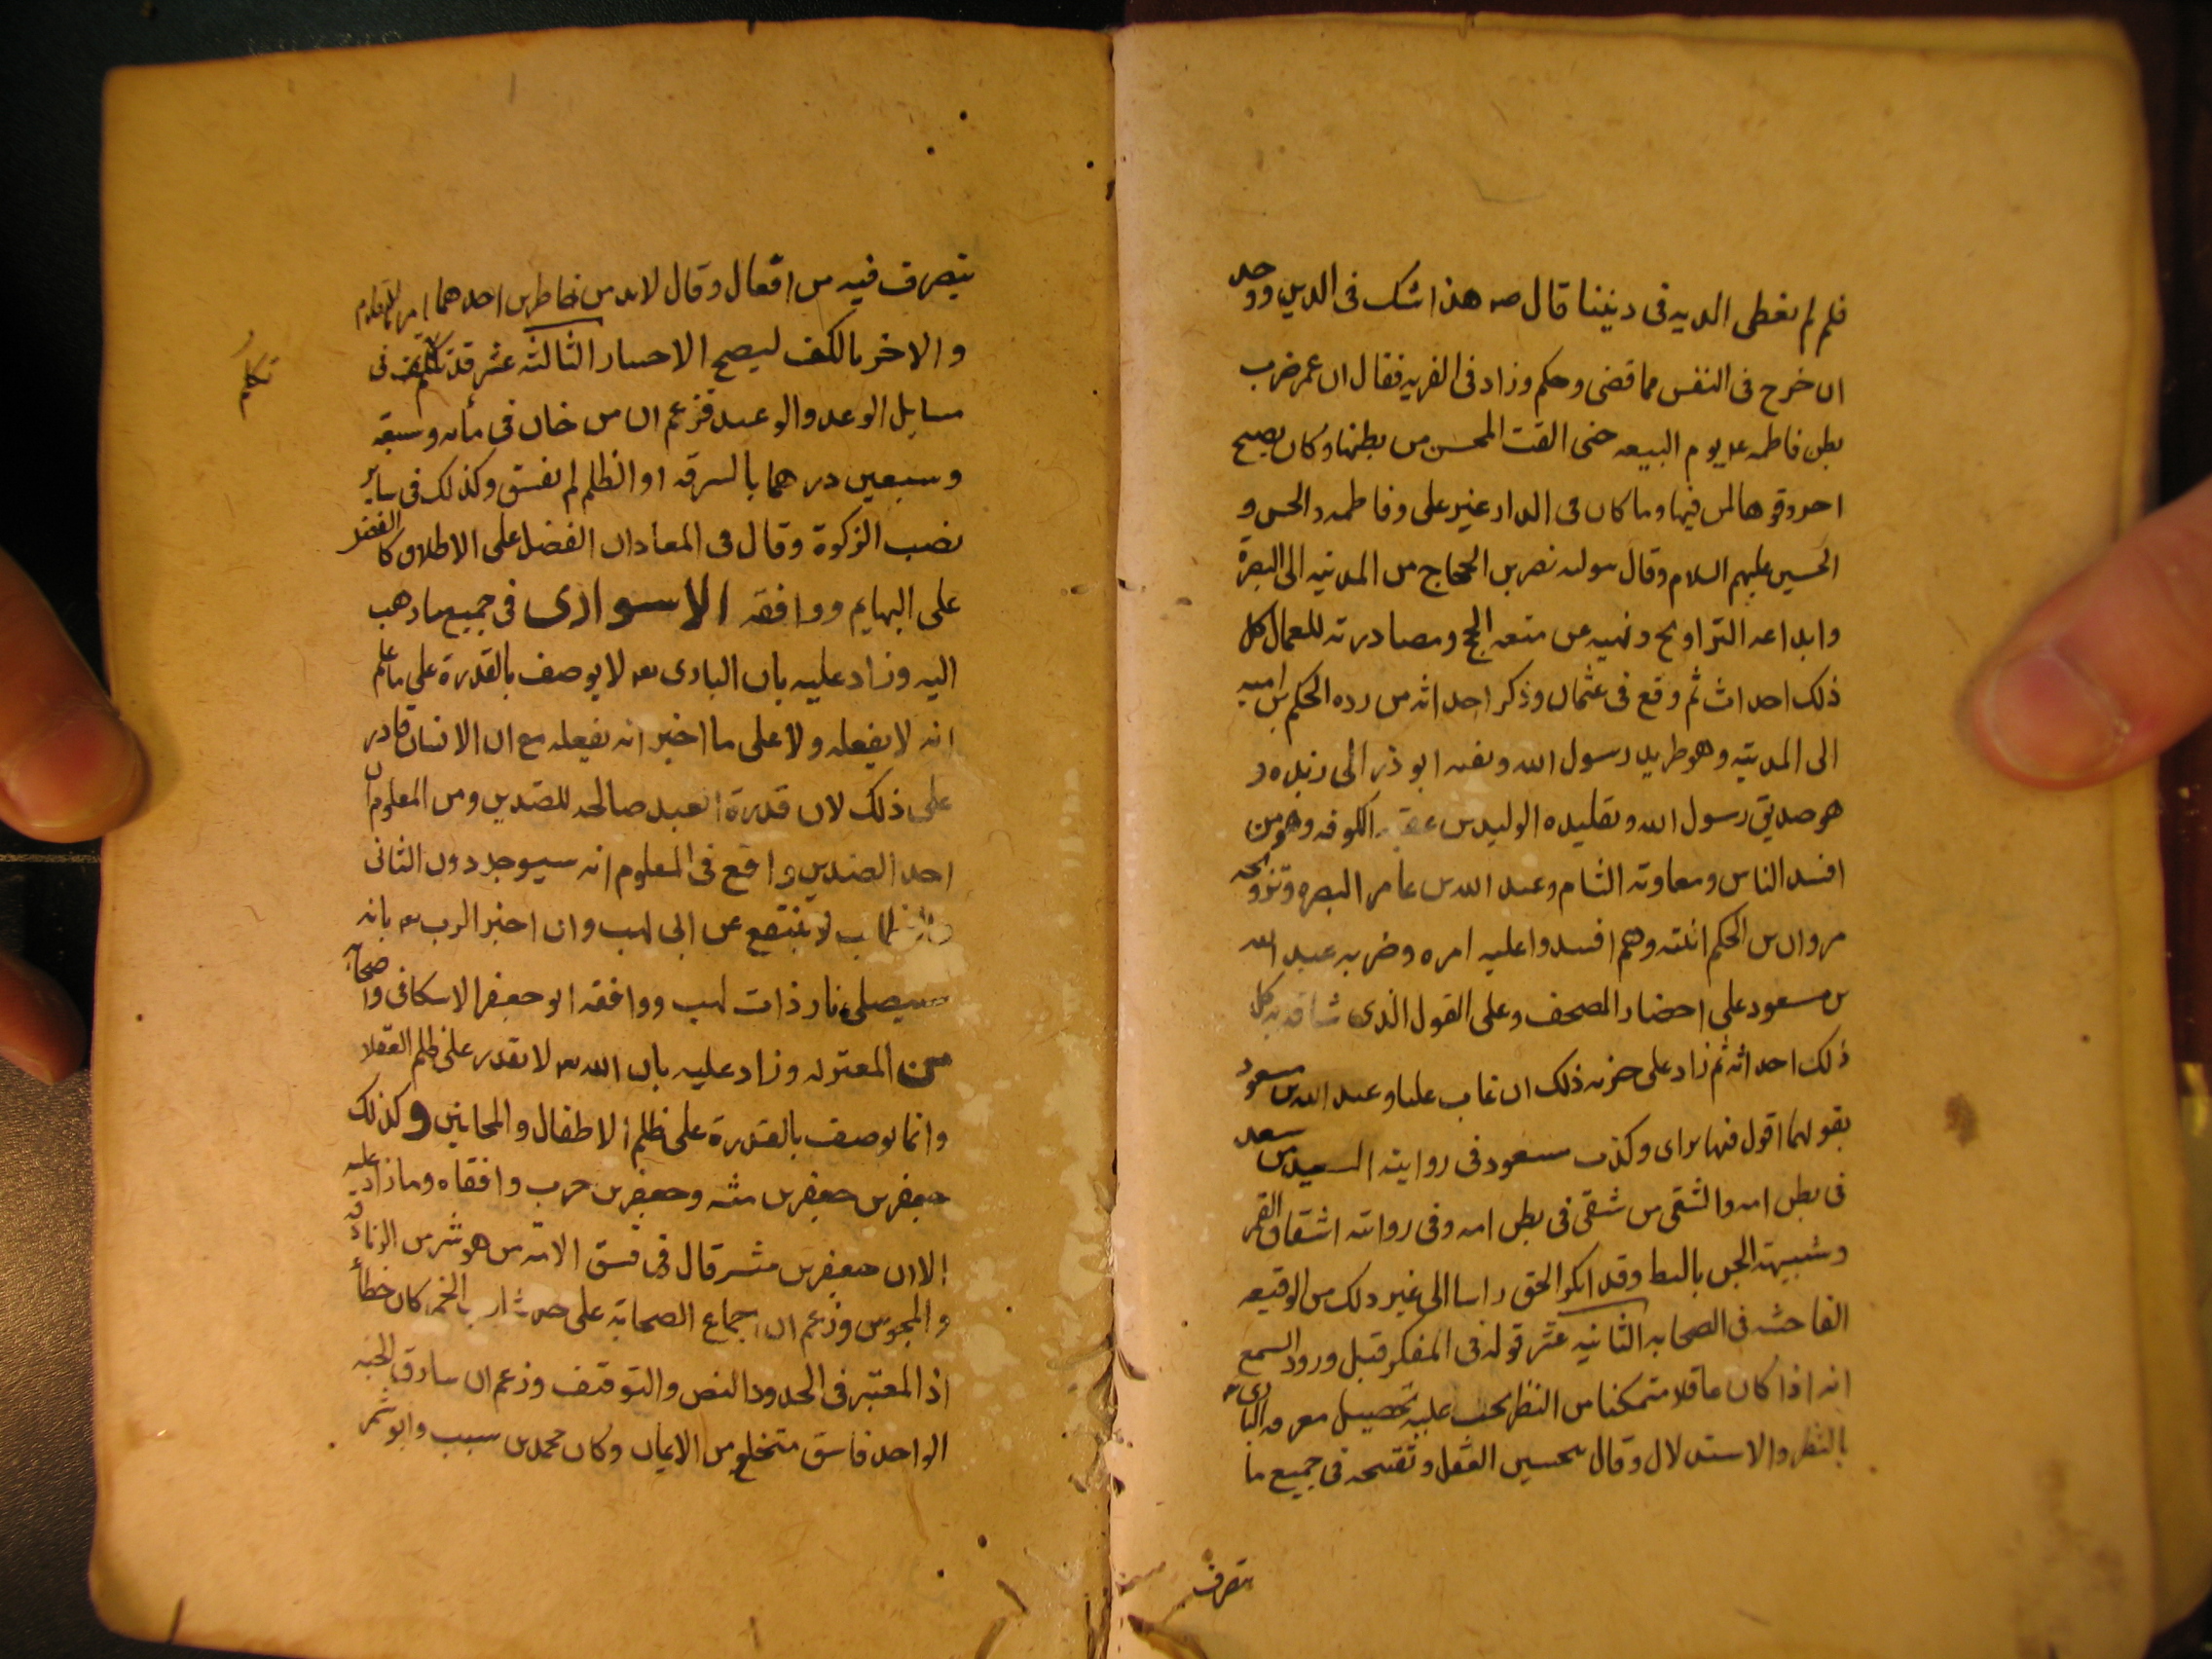 فلم لم نعطى الدنيه فى ديننا قال صه هذا شك فى الدين ووجد
ان خرج فى النفس مما قضى وحكم وزاد فى الفريه فقال ان عمر ضرب
بطن فاطمه عه يوم البيعه حتى القت المحسن من بطنها وكان يصيح
احرقوها لمن فيها وما كان فى الدار غير على وفاطمه والحسن و
الحسين عليهم السلام وقال نصر بن الحجاج من المدينه الى البصرة
وابداعه التراويح ونهيه عن متعه الحج ومصادرته للعمال كل
ذلك احداث ثم وقع فى عثمان وذكر احداثه من رده الحكم بن اميه
الى المدينه وهو طريد رسول الله ونفيه ابو ذر الى ربده و
هو صديق رسول الله وتقليده الوليد بن عقبه الكوفه وهو من
افسد الناس ومعاويه الشام وعبد الله بن عامر البصره وتزويجه
مروان بن الحكم ابنته وهم افسدوا عليه امره وضربه عبد الله
بن مسعود على احضار المصحف وعلى القول الذى شاقه به كل
ذلك احداثه ثم زاد على خزيه ذلك ان عاب عليا وعبد الله بن مسعود
بقولهما اقول فيها براى وكذب مسعود فى روايته السعيد من سعد
فى بطن امه والشقى من شقى فى بطن امه وفى روايته اشقاق القمر
وشبيهه الجن بالبط وقد انكر الحق راسا الى غير ذلك من الوقيعه
الفاحشه فى الصحابه الثانيه عشر قوله فى المفكر قبل ورود السمع
انه اذا كان عاقلا متمكنا من النظر يجب عليه تحصيل معرفه البارى
بالنظر والاستدلال وقال بتحسين العقل وتقبيحه فى جميع ما
يتصرف
يتصرف فيه من افعال وقال لابد من خاطرين احدهما امر بالاقدام
والاخر بالكف ليصح الاختيار الثالثه عشر قد تكلم فى
تكلم
مسايل الوعد والوعيد فزعم ان من خان فى مائه وتسعه
وسبعين درهما بالسرقه او الظلم لم يفسق وكذلك فى ساير
نصب الزكوة وقال فى المعاد ان الفضل على الاطلاق كالفضل
على البهايم ووافقه الاسوارى فى جميع ما ذهب
اليه وزاد عليه بان البارى تعه لا يوصف بالقدرة على ما علم
انه لا يفعله ولا على ما اخبر انه يفعله مع ان الانسان قادر
على ذلك لان قدرة العبد صالحه للضدين ومن المعلوم ان
احد الضدين واقع فى المعلوم انه سيوجد دون الثانى
والخطاب لا ينقطع عن ابى لهب وان اخبر الرب تعه بانه
سيصلى نار ذات لهب ووافقه ابو جعفر الاسكافى واصحابه
من المعتزله وزاد عليه بان الله تعه لا يقدر على ظلم العقلا
وانما يوصف بالقدرة على ظلم الاطفال والمجانين وكذلك
جعفر بن جعفر بن مبشه وجعفر بن حرب وافقاه وما زاد عليه
الا ان جعفر بن مبشر قال فى فسق الامه من هو شر من الزنادقه
والمجوس وزعم ان اجماع الصحابه على حد شارب الخمر كان خطأ
اذ المعتبر فى الحدود النص والتوقيف وزعم ان سارق الحبه
الواحد فاسق متخلع من الايمان وكان محمد بن سبب وابو شمر